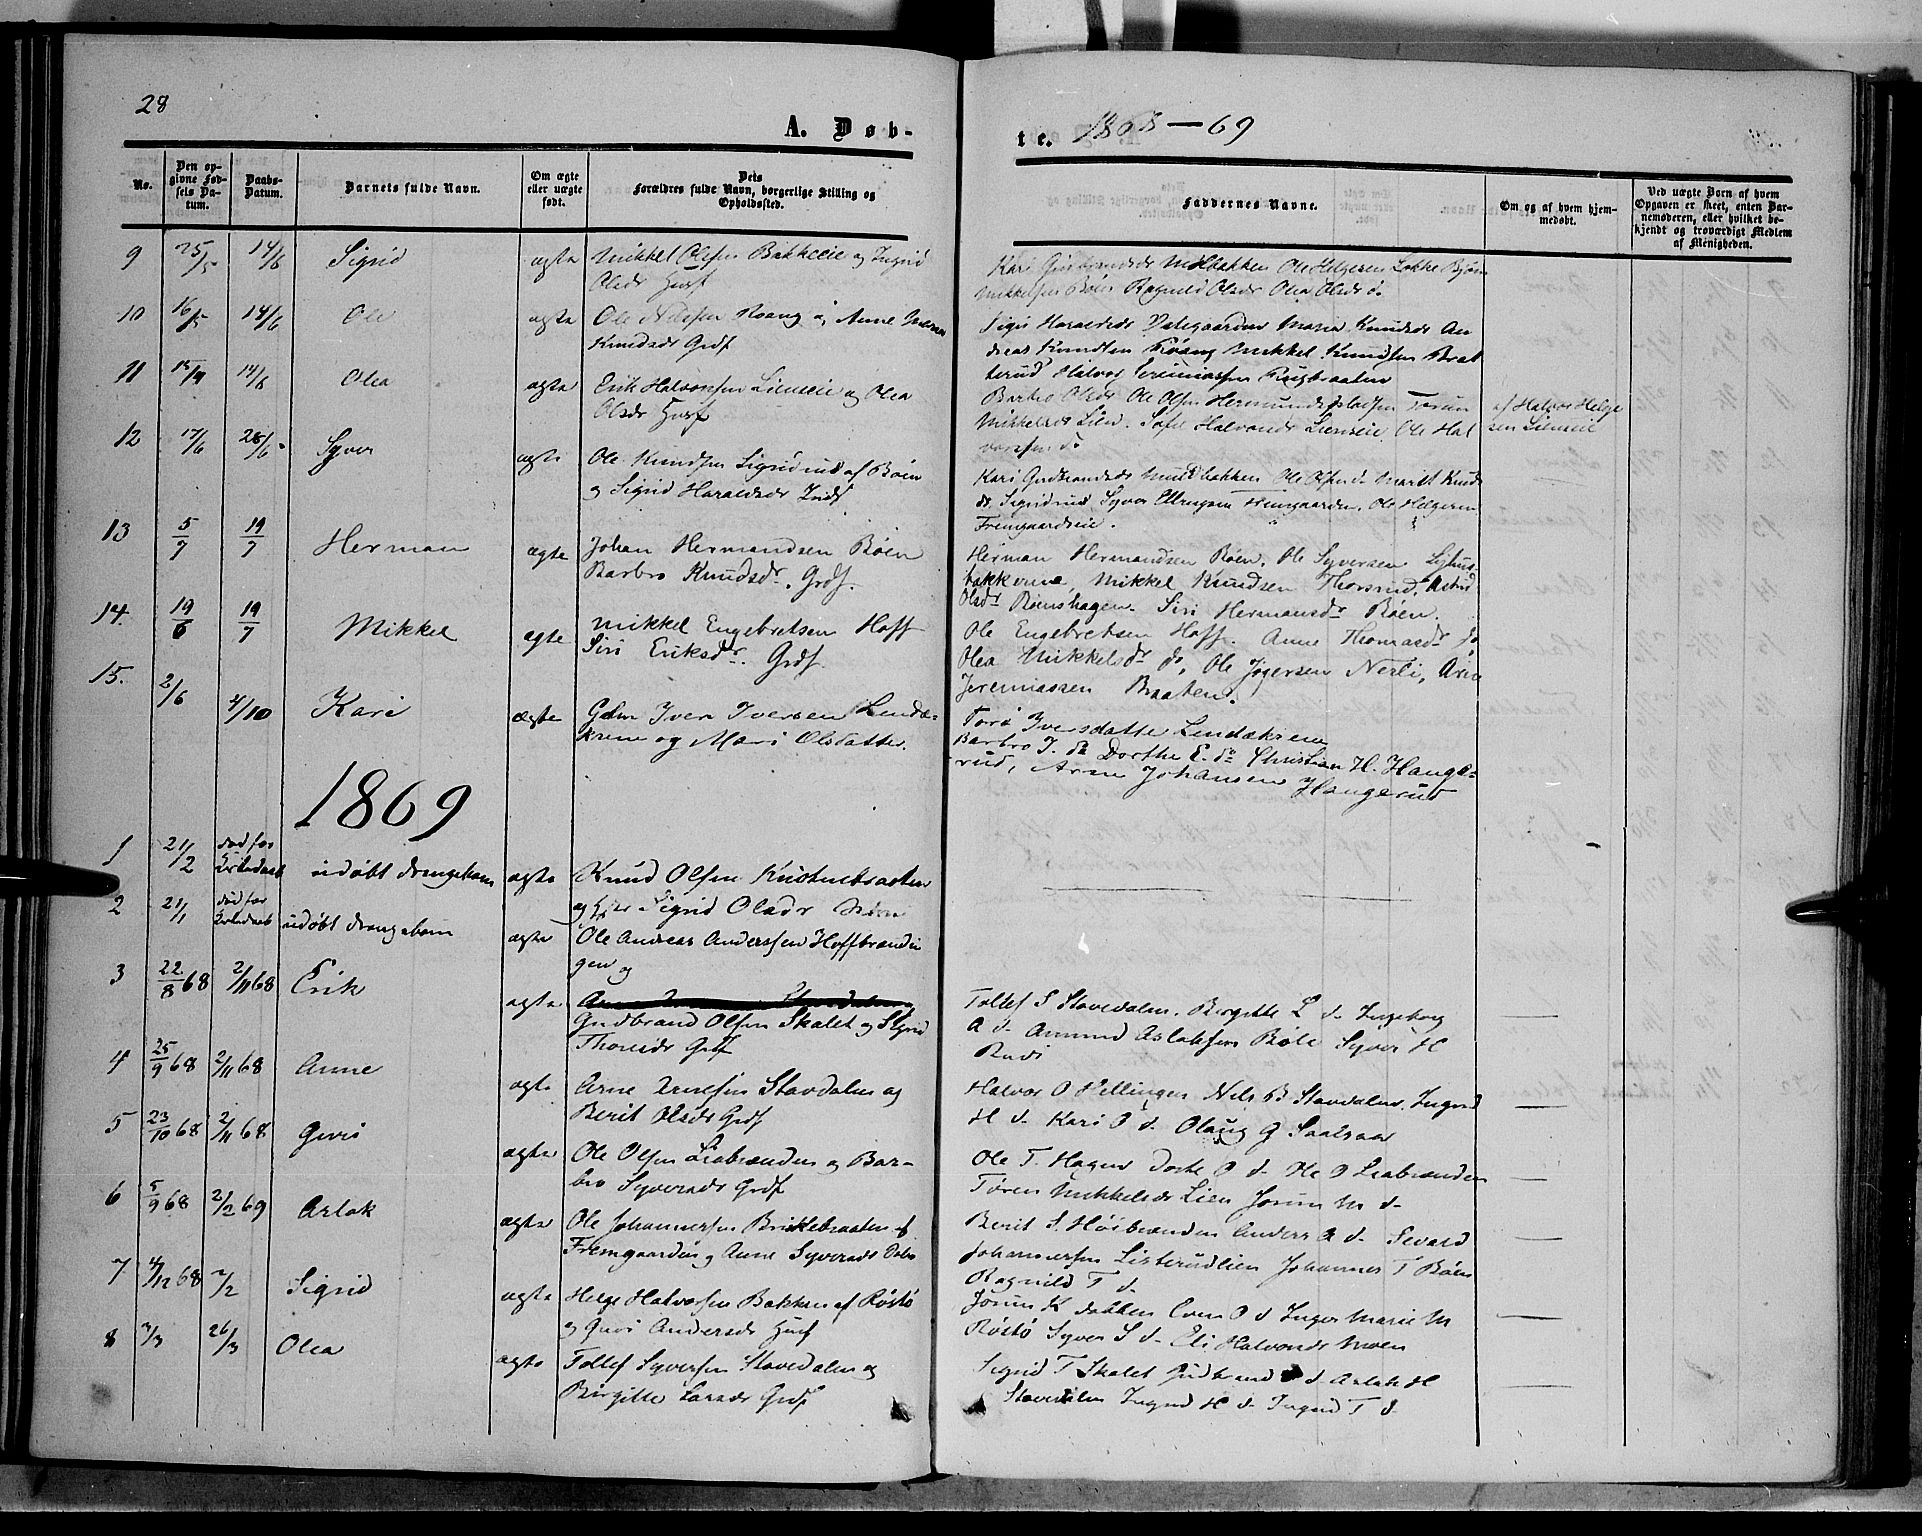 28
A. Døb-
te. 1868-69
No.
Den op-
givne Fød-
sels Da-
tum.
Daabs-
Datum.
Barnets fulde Navn.
Om ægte
eller uægte
født.
Dets
Forældres fulde Navn, borgerlige Stilling og
Opholdssted.
Faddernes Navne.
Om og af hvem hjem-
medøbt.
Ved uægte Barn af hvem
Opgaven er skeet, enten Bar-
nemøderen, eller hvilket be-
kjendt og troværdigt Medlem
af Menigheden.
9 25/5 14/6 Sigrid ægte Mikkel Olsen Bakkeeie og Ingrid
Olsdr Husf
Kari Gudbrandsdr Ole Helgesen Løkke
Mikkelsen Bøen Ragnild Olsdr Olea Olsdr d.
10 16/5 14/6 Ole ægte Ole Nilssen Roang og Anne
Knudsdr Grdf
Sigri Haraldsdr Maria Knudsdr An
dreas Knudsen Roang Mikkel Knudsen Brat
terud Halvor Jeremiassen
11 15/4 14/6 Olea ægte Erik Halvorsen Lieneie og Olea
Olsdr Husf
Barbro Olsdr Ole Olsen Hermundspladsen Torun
Mikkelsdr Lien. Sofie Halvorsdr Lieneie. Ole Hal
vorsen do
af Halvor Helge
sen Lieneie
12 17/6 28/6 Syver ægte Ole Knudsen Sigridrud af Bøen
og Sigrid Haraldsdr Inds
Kari Gudbrandsdr bakken Ole Olsen d. Marit Knud
dr. Sigridrud Syver Ellingsen Fremgaarden. Ole Helgesen
Fremgaardseie.
13 5/7 19/7 Herman ægte Johan Hermandsen Bøen
Barbro Knudsdr. Grdf.
Herman Hermandsen Bøen. Ole Syversen
bakkerne, Mikkel Knudsen Thorsrud, Astrid
Olsdr Bøenshagen. Siri Hermansdr Bøen.
14. 19/6 19/7 Mikkel ægte Mikkel Engebretsen Hoff
Siri Eriksdr. Grdf.
Ole Engebretsen Hoff. Anne Thomasdr do
Olea Mikkelsdr do, Ole Jøgersen Nerli, Arne
Jeremiassen Braaten.
15. 2/6 4/10 Kari ægte Gdm Iver Iversen Lendæ-
krene og Mari Olsdatter.
Torø Iversdatte Lendækrene
Barbro I. do Dorthe E. do Christian H. Hauge-
rud, Arne Johansen Haugerud
1869
1 21/2 død før
Kirkedaab udøbt drengebarn ægte Knud Olsen Kristinebraaten
og Sigrid Olsdr
2 21/1 død før
Kirkedaab udøbt drengebarn ægte Ole Andreas Anderssen Hoffbrændin
gen og
3 22/8 68 2/11 68 Erik ægte
Gudbrand Olsen Skalet og Sigrid
Thorsdr Grdf
Tollef S Stavedalen. Birgitte L d. Ingeborg
A d. Amund Aslaksen Bøle Syver H
Rudi
4 25/9 68 2/11 68 Anne ægte Arne Arnesen Stavdalen og
Berit Olsdr Grdf
Halvor O Hellingen Nils B Stavdalen. Ingrid
H d. Kari O d. Olaug G
5 23/10 68 2/11 68 Guri ægte Ole Olsen Liebrenden og Bar-
bro Syversdr Grdf
Ole T. Hagen Dorte O d. Ole O Liabrenden
Tøren Mikkelsdr Lien Jorun M d.
6 5/9 68 2/2 69 Aslak ægte Ole Johannessen Brislebraaten af
Fremgaarden og Anne Syversdr
Berit S. Høibrenden Anders A d. Sevard
Johannessen Listerudlien Johannes T Bøen
Ragnild T d.
7 4/12 68 2/2 Sigrid ægte Helge Halvorsen Bakken af Røstø
og Guri Andersdr Husf
Jorun K Bakken Even O d Inger Marie M
Røstø Syver S d. Eli Halvorsdr Moen
8 3/3 26/3 Olea ægte Tollef Syversen Stavedalen og
Birgitte Larsdr Grdf
Sigrid T Skalet Gudbrand d. Aslak H
Stavedalen Ingrid H d. Ingrid T d.